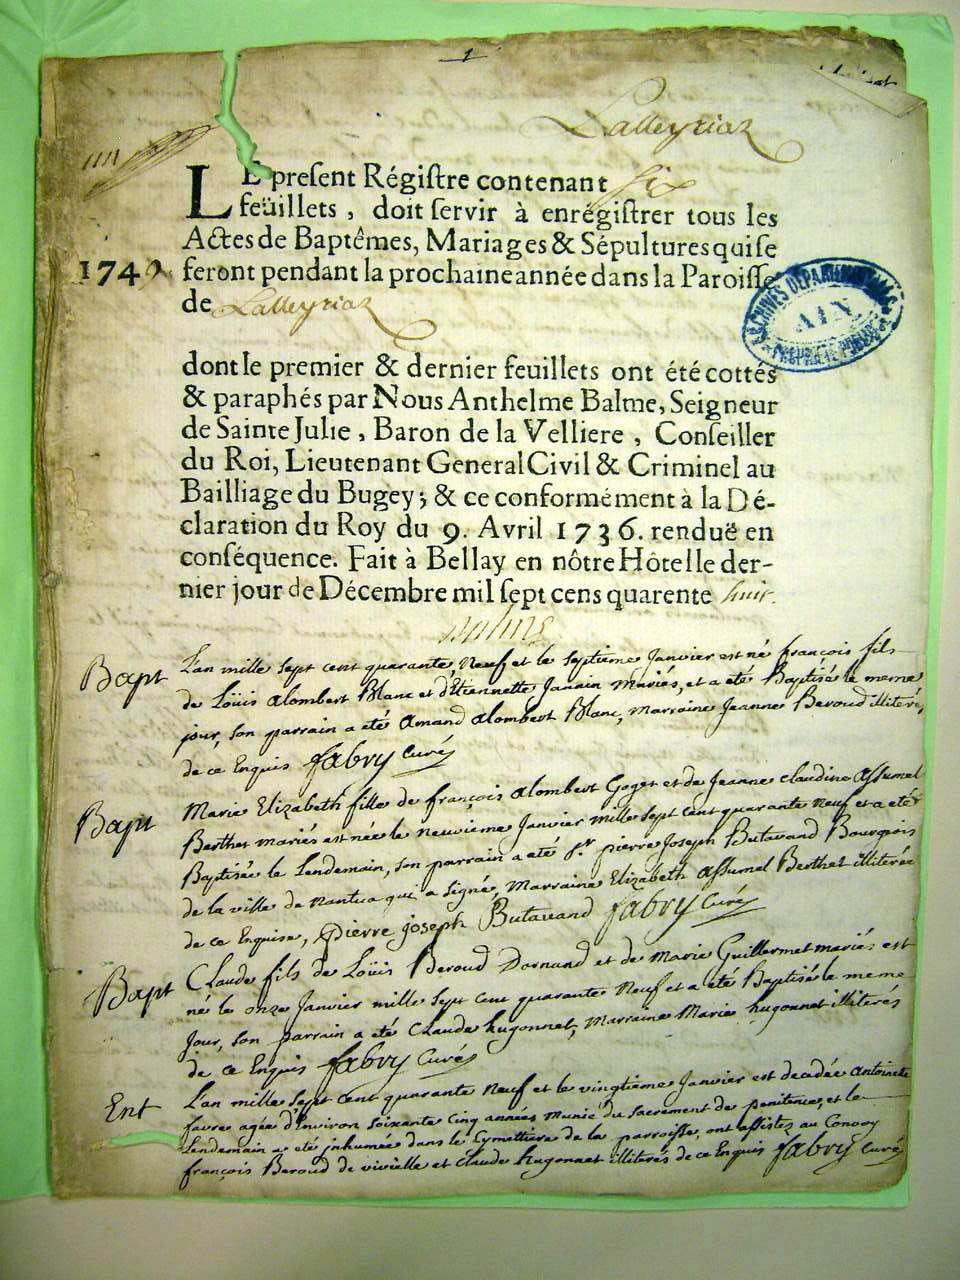 1
Lalleyriaz
LE preſent Régiſtre contenant ſix
feüillets, doit ſervir à enrégiſtrer tous les
Actes de Baptêmes, Mariages & Sépultures qui ſe
1749 feront pendant la prochaine année dans la Paroiſſe
de Lalleyriaz
ARCHIVES DÉPARTEMENTALES
AIN
PROPRIÉTÉ PUBLIQUE
dont le premier & dernier feuillets ont été cottés
& paraphés par Nous Anthelme Balme, Seigneur
de Sainte Julie, Baron de la Velliere, Conſeiller
du Roi, Lieutenant General Civil & Criminel au
Bailliage du Bugey; & ce conformément à la Dé-
claration du Roy du 9. Avril 1736. renduë en
conſéquence. Fait à Bellay en nôtre Hôtel le der-
nier jour de Décembre mil ſept cens quarente huit.
Balme
Bapt L'an mille sept cent quarante neuf et le septieme Janvier est né françois fils
de Loüis alombert Blanc et d'Etiennette Janain mariés, et a été Baptisé le meme
jour, son parrain a été amand alombert Blanc, marraine Jeanne Beroud illiterés
de ce Enquis fabry Curé
Bapt Marie Elizabeth fille de françois alombert Goget et de Jeanne claudine assumel
Berthet mariés est née le neuvieme Janvier mille sept cent quarante neuf et a eté
Baptisée le Lendemain, son parrain a eté Sr pierre Joseph Butavand Bourgeois
de la ville de nantua qui a signé, marraine Elizabeth assumel Berthet illiterée
de ce Enquise, pierre joseph Butavand fabry Curé
Bapt Claude fils de Loüis Beroud Dornand et de marie Guillermet mariés est
né le onze Janvier mille sept cent quarante neuf et a eté Baptisé le meme
Jour, son parrain a eté Claude hugonnet, marraine marie hugonnet illiterés
de ce Enquis fabry Curé
Ent L'an mille sept cent quarante neuf et le vingtieme Janvier est decedée antoinete
favre agée d'Environ soixante cinq années munie du sacrement de penitence, et le
Lendemain a eté inhumée dans le Cymettiere de la parroisse, ont assistez au Convoy
françois Beroud de vivielle et claude hugonnet illiterés de ce Enquis fabry Curé